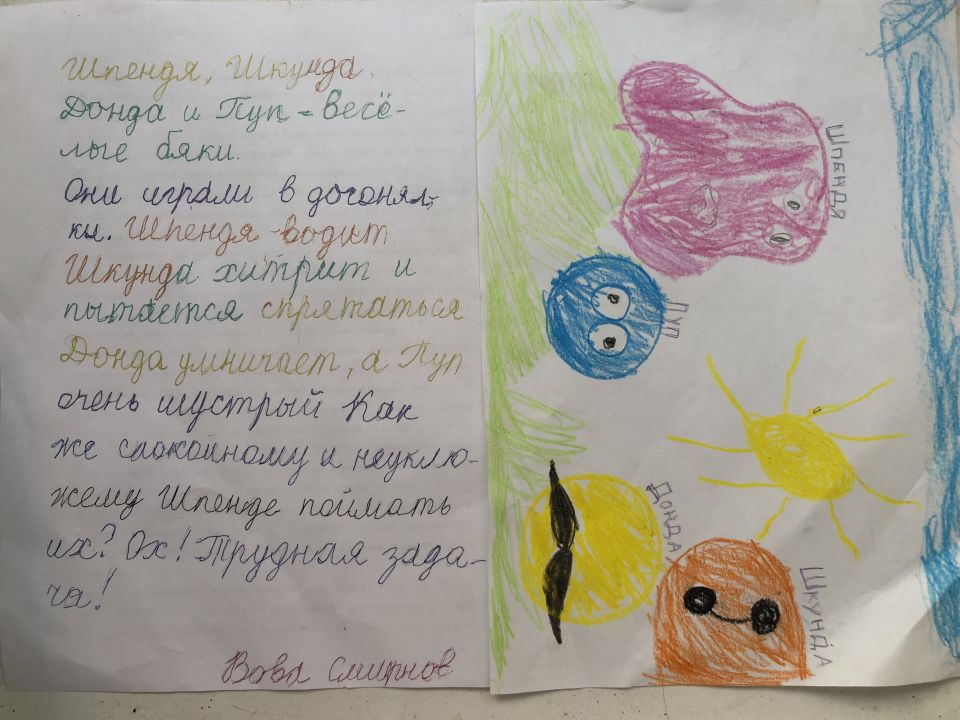 Шпендя, Шкунда.
Донда и Пуп - весё-
лые бяки.
Они играли в догонял-
ки. Шпендя водит
Шкунда хитрит и
пытается спрятаться
Донда умничает, а Пуп
очень шустрый Как
же спокойному и неуклю-
жему Шпенде поймать
их? Ох! Трудная зада-
ча!
Вова Смирнов
Шпендя
Пуп
Донда
Шкунда